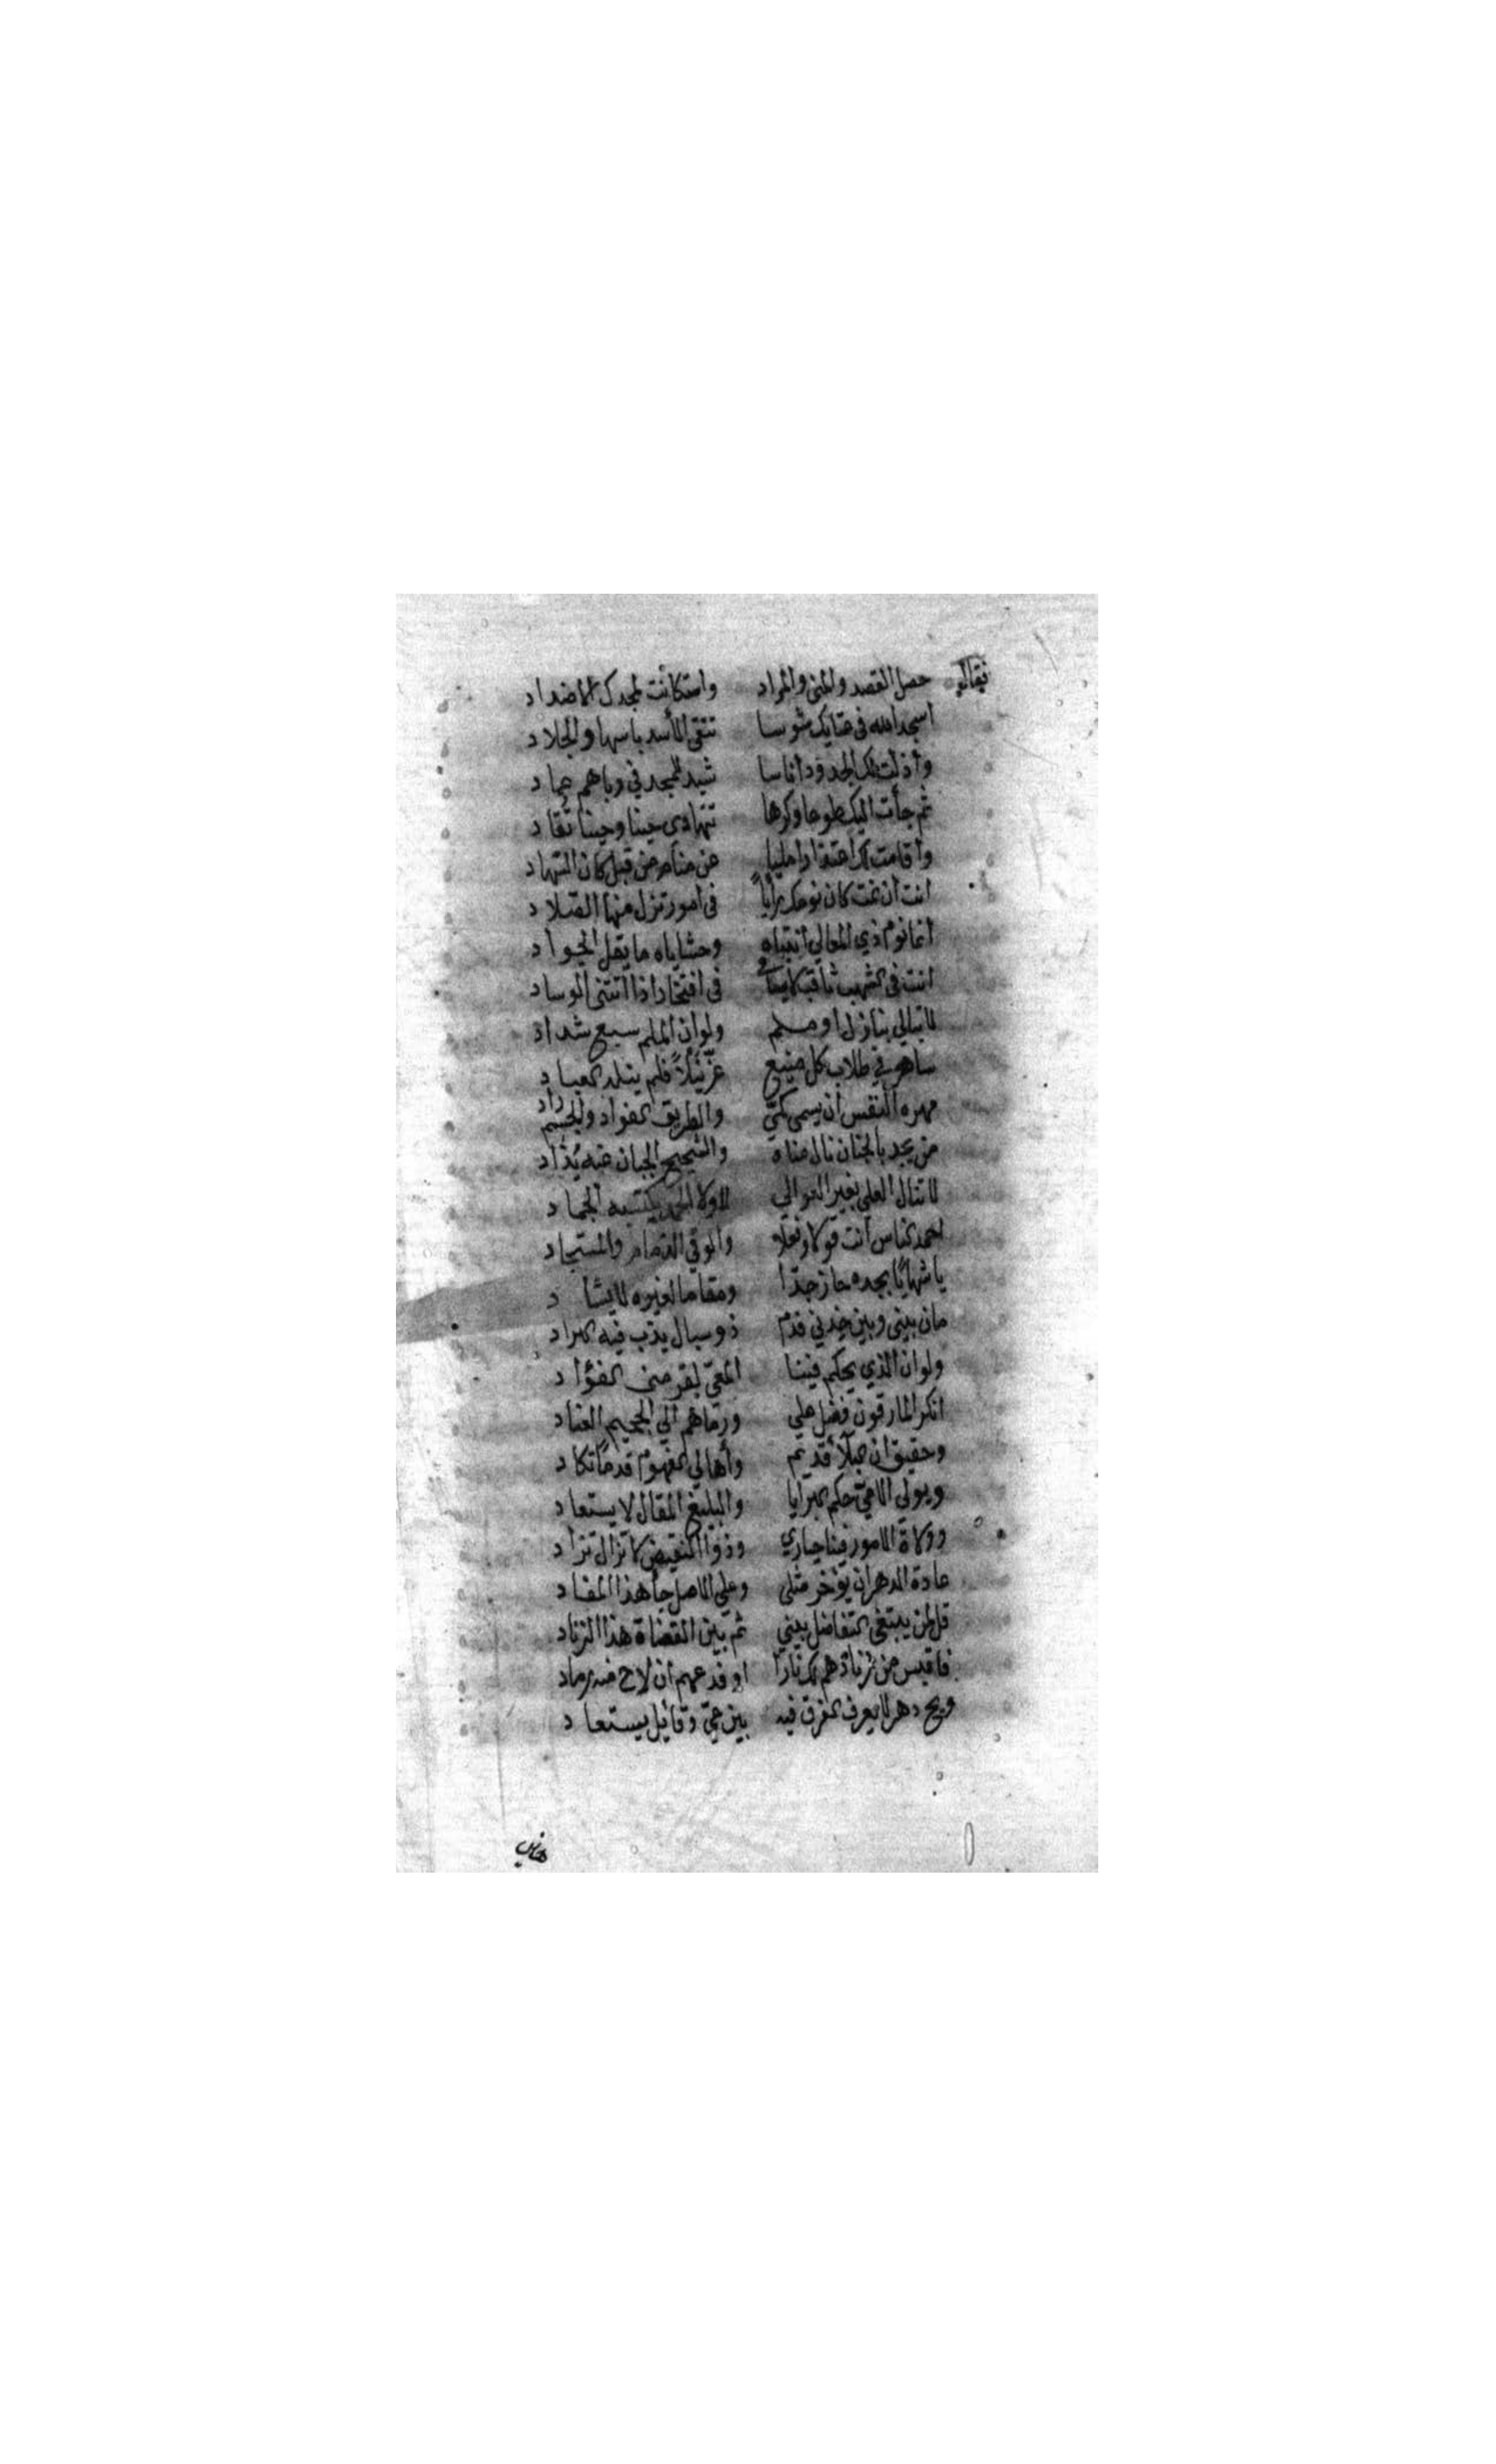 فقال حصل القصد والمنى والمراد واستكانت لمجدك الاضداد
اسجد الله في شوسا تتقي الأسد باسها والجلاد
وأذلت لك أناسا شيد للمجد في عماد
ثم جأت اليك طوعا وكرها تتهادى حينا وحينا تقاد
وأقامت لك اعتذارا مليا عن منام من قبل كان السهاد
انت أن نمت كان نومك في أمور تزل منها الصلاد
أنما نوم ذي المعالي أنتباه وحشاياه ما يقل الجواد
انت في الشهب ثاقب في افتخار اذا الوساد
لا تبالي بنازل او ملم ولو ان الملم سبع شداد
ساهر في طلاب كل منيع عز نيلاً فلم ينله العباد
مهره النفس أن يسمى كمي والطريق الفواد والجسم زاد
من يجد بالجنان نال مناه والشحيح الجبان عنه يذاد
لا تنال العلى بغير العوالي الحمد يكتسبه الجماد
احمد الناس أنت قولا وفعلا والوفي والمستجاد
يا شهابًا بجده حاز جدًا ومقاما لغيره لا يشاد
مان بيني وبين خدني فدم ذو سبال يذب فيه
ولو ان الذي يحكم فينا المعي لقر مني الفؤاد
انكر المارقون فضل علي ورماهم الي الجحيم العناد
وحقيق ان وأهالي الفهوم قدمًا تكاد
ويولى الامي حكم البرايا والبليغ المقال لا يستعاد
وولاة الامور فينا حيارى وذوا النقيض لا تزال تزاد
عادة الدهر ان يؤخر مثلي وعلى الاصل جأ هذا المفاد
قل لمن يبتغي التفاضل بيني ثم بين القضاة هذا الزناد
فاقبس من زنادهم لك نارًا او فدعهم أن لاح منه رماد
ويح دهر لا يعرف الفرق فيه بين عي وقائل يستعاد